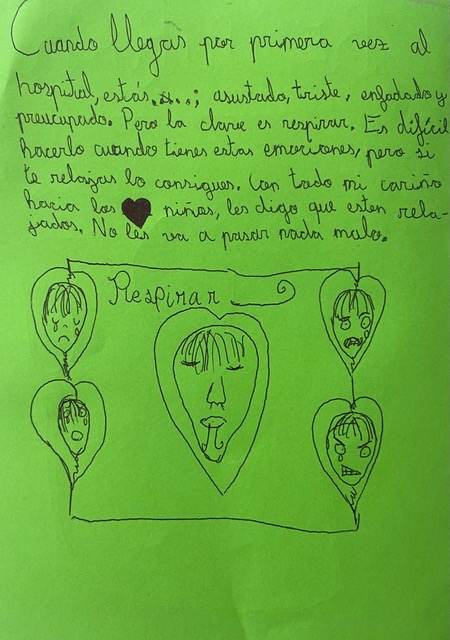 Cuando llegas por primera vez al
hospital, estás....; asustado, triste, enfadado y
preucupado. Pero la clave es respirar. Es difícil
hacerlo cuando tienes estas emociones, pero si
te relajas lo consigues. Con todo mi cariño
hacia los niños, les digo que esten rela-
jados. No les va a pasar nada malo.
Respirar